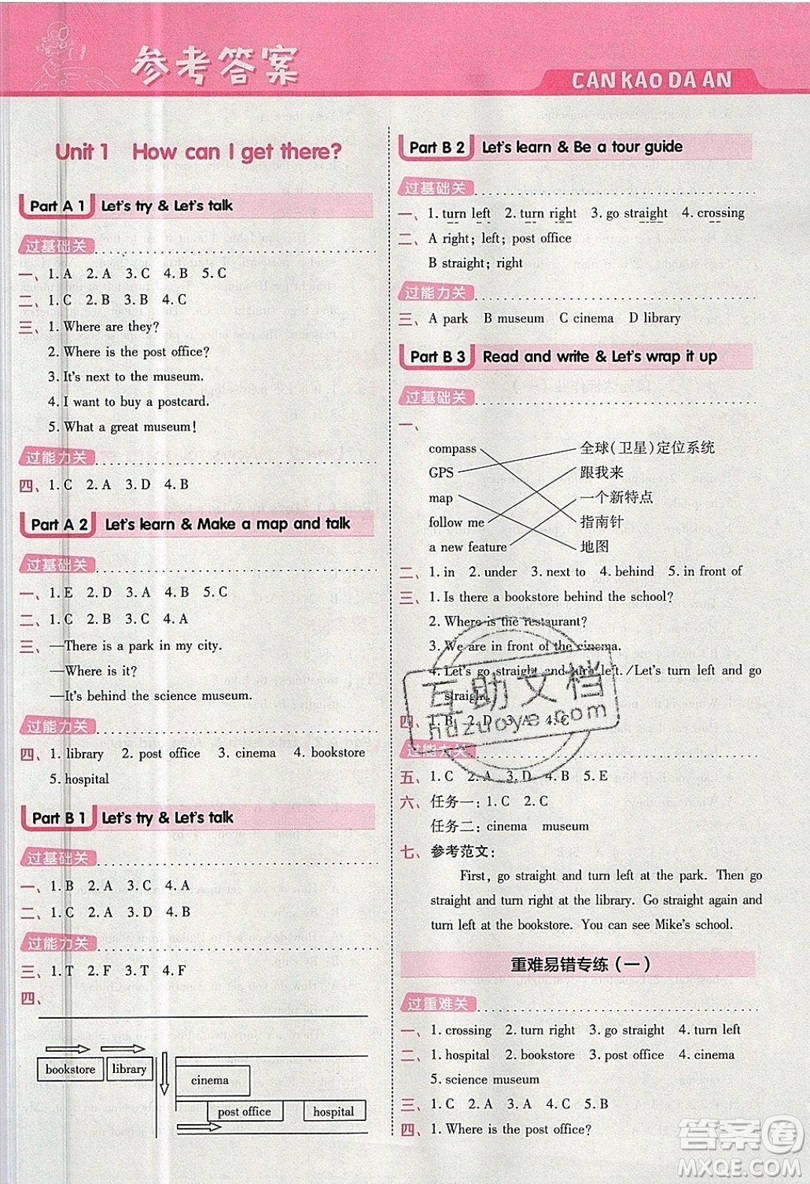 参考答案
CANKAO DA AN
Unit 1 How can I get there?
Part A 1 Let's try & Let's talk
过基础关
一、1. A 2. A 3. C 4. B 5. C
二、1. C 2. B 3. A 4. B
三、1. Where are they?
2. Where is the post office?
3. It's next to the museum.
4. I want to buy a postcard.
5. What a great museum!
过能力关
四、1. C 2. A 3. D 4. B
Part A 2 Let's learn & Make a map and talk
过基础关
一、1. E 2. D 3. A 4. B 5. C
二、1. C 2. B 3. C 4. A
三、—There is a park in my city.
—Where is it?
—It's behind the science museum.
过能力关
四、1. library 2. post office 3. cinema 4. bookstore
5. hospital
Part B 1 Let's try & Let's talk
过基础关
一、1. B 2. A 3. C 4. A
二、1. C 2. A 3. D 4. B
过能力关
三、1. T 2. F 3. T 4. F
四、
bookstore library cinema
post office hospital
Part B 2 Let's learn & Be a tour guide
过基础关
一、1. turn left 2. turn right 3. go straight 4. crossing
二、A right; left; post office
B straight; right
过能力关
三、A park B museum C cinema D library
Part B 3 Read and write & Let's wrap it up
过基础关
一、
compass 全球(卫星)定位系统
GPS 跟我来
map 一个新特点
follow me 指南针
a new feature 地图
二、1. in 2. under 3. next to 4. behind 5. in front of
三、1. Is there a bookstore behind the school?
2. Where is the restaurant?
3. We are in front of the cinema.
4. Let's go straight and turn left./Let's turn left and go
straight.
四、1. B 2. D 3. A 4. C
过能力关
五、1. C 2. A 3. D 4. B 5. E
六、任务一：1. C 2. C
任务二：cinema museum
七、参考范文：
First, go straight and turn left at the park. Then go
straight and turn right at the library. Go straight again and
turn left at the bookstore. You can see Mike's school.
重难易错专练(一)
过重难关
一、1. crossing 2. turn right 3. go straight 4. turn left
二、1. hospital 2. bookstore 3. post office 4. cinema
5. science museum
三、1. C 2. B 3. C 4. B 5. A
四、1. Where is the post office?
互助文档
huzuoye.com
答案圈
MXQE.COM